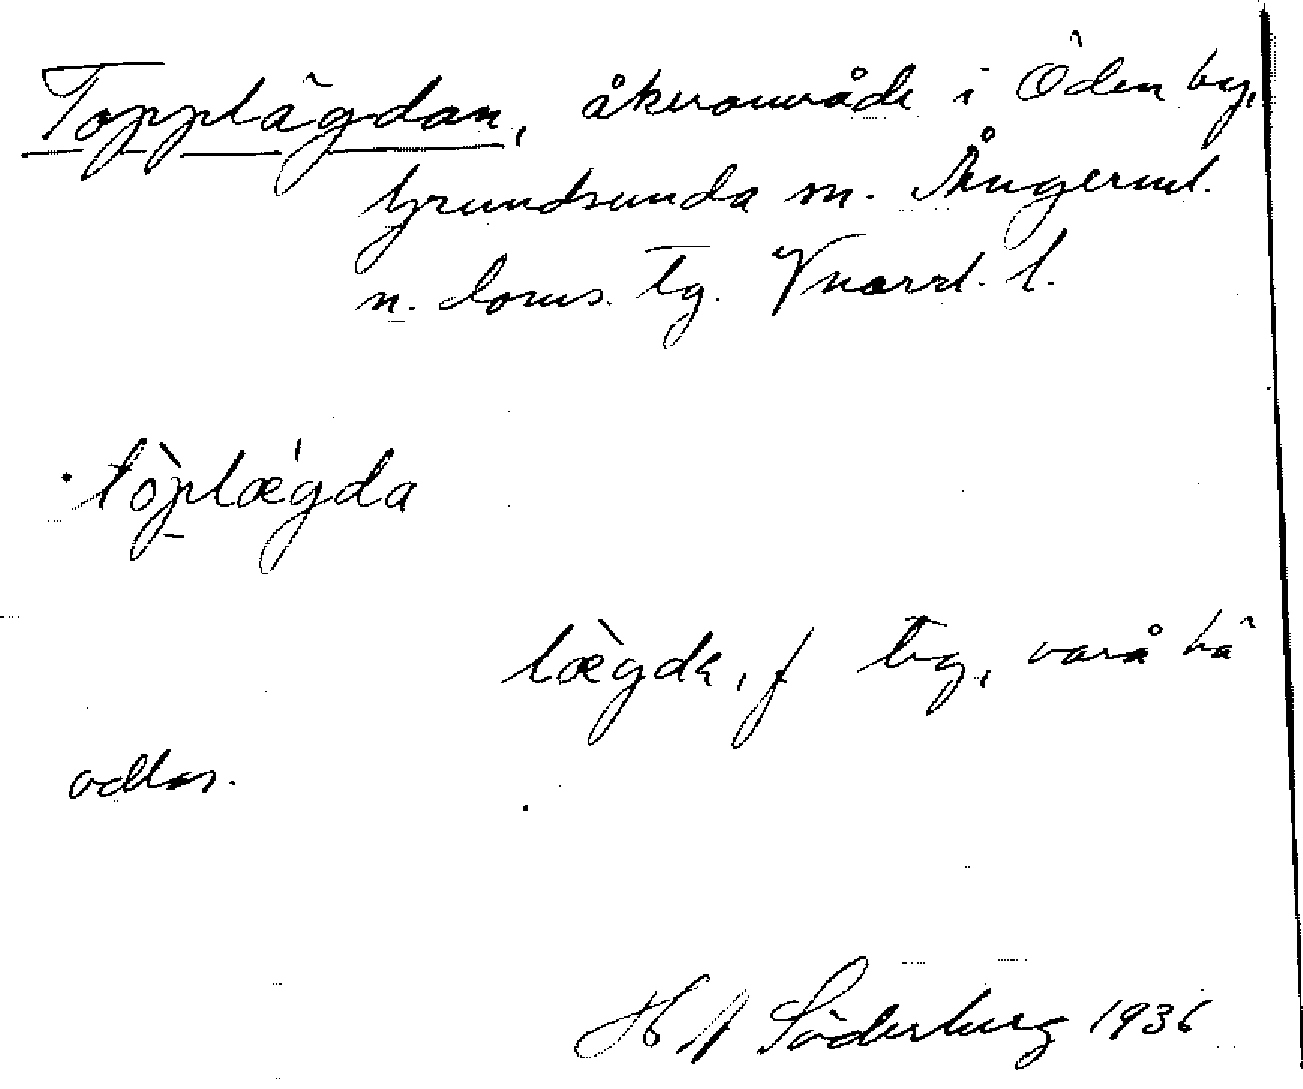 Topplägdan, åkerområde i Öden by,
Grundsunda sn. Ångerml.
n. doms. tg. Vnorrl. l.
tòplæ'gda
læ̀gda, f
odlas.
H A Söderberg 1936